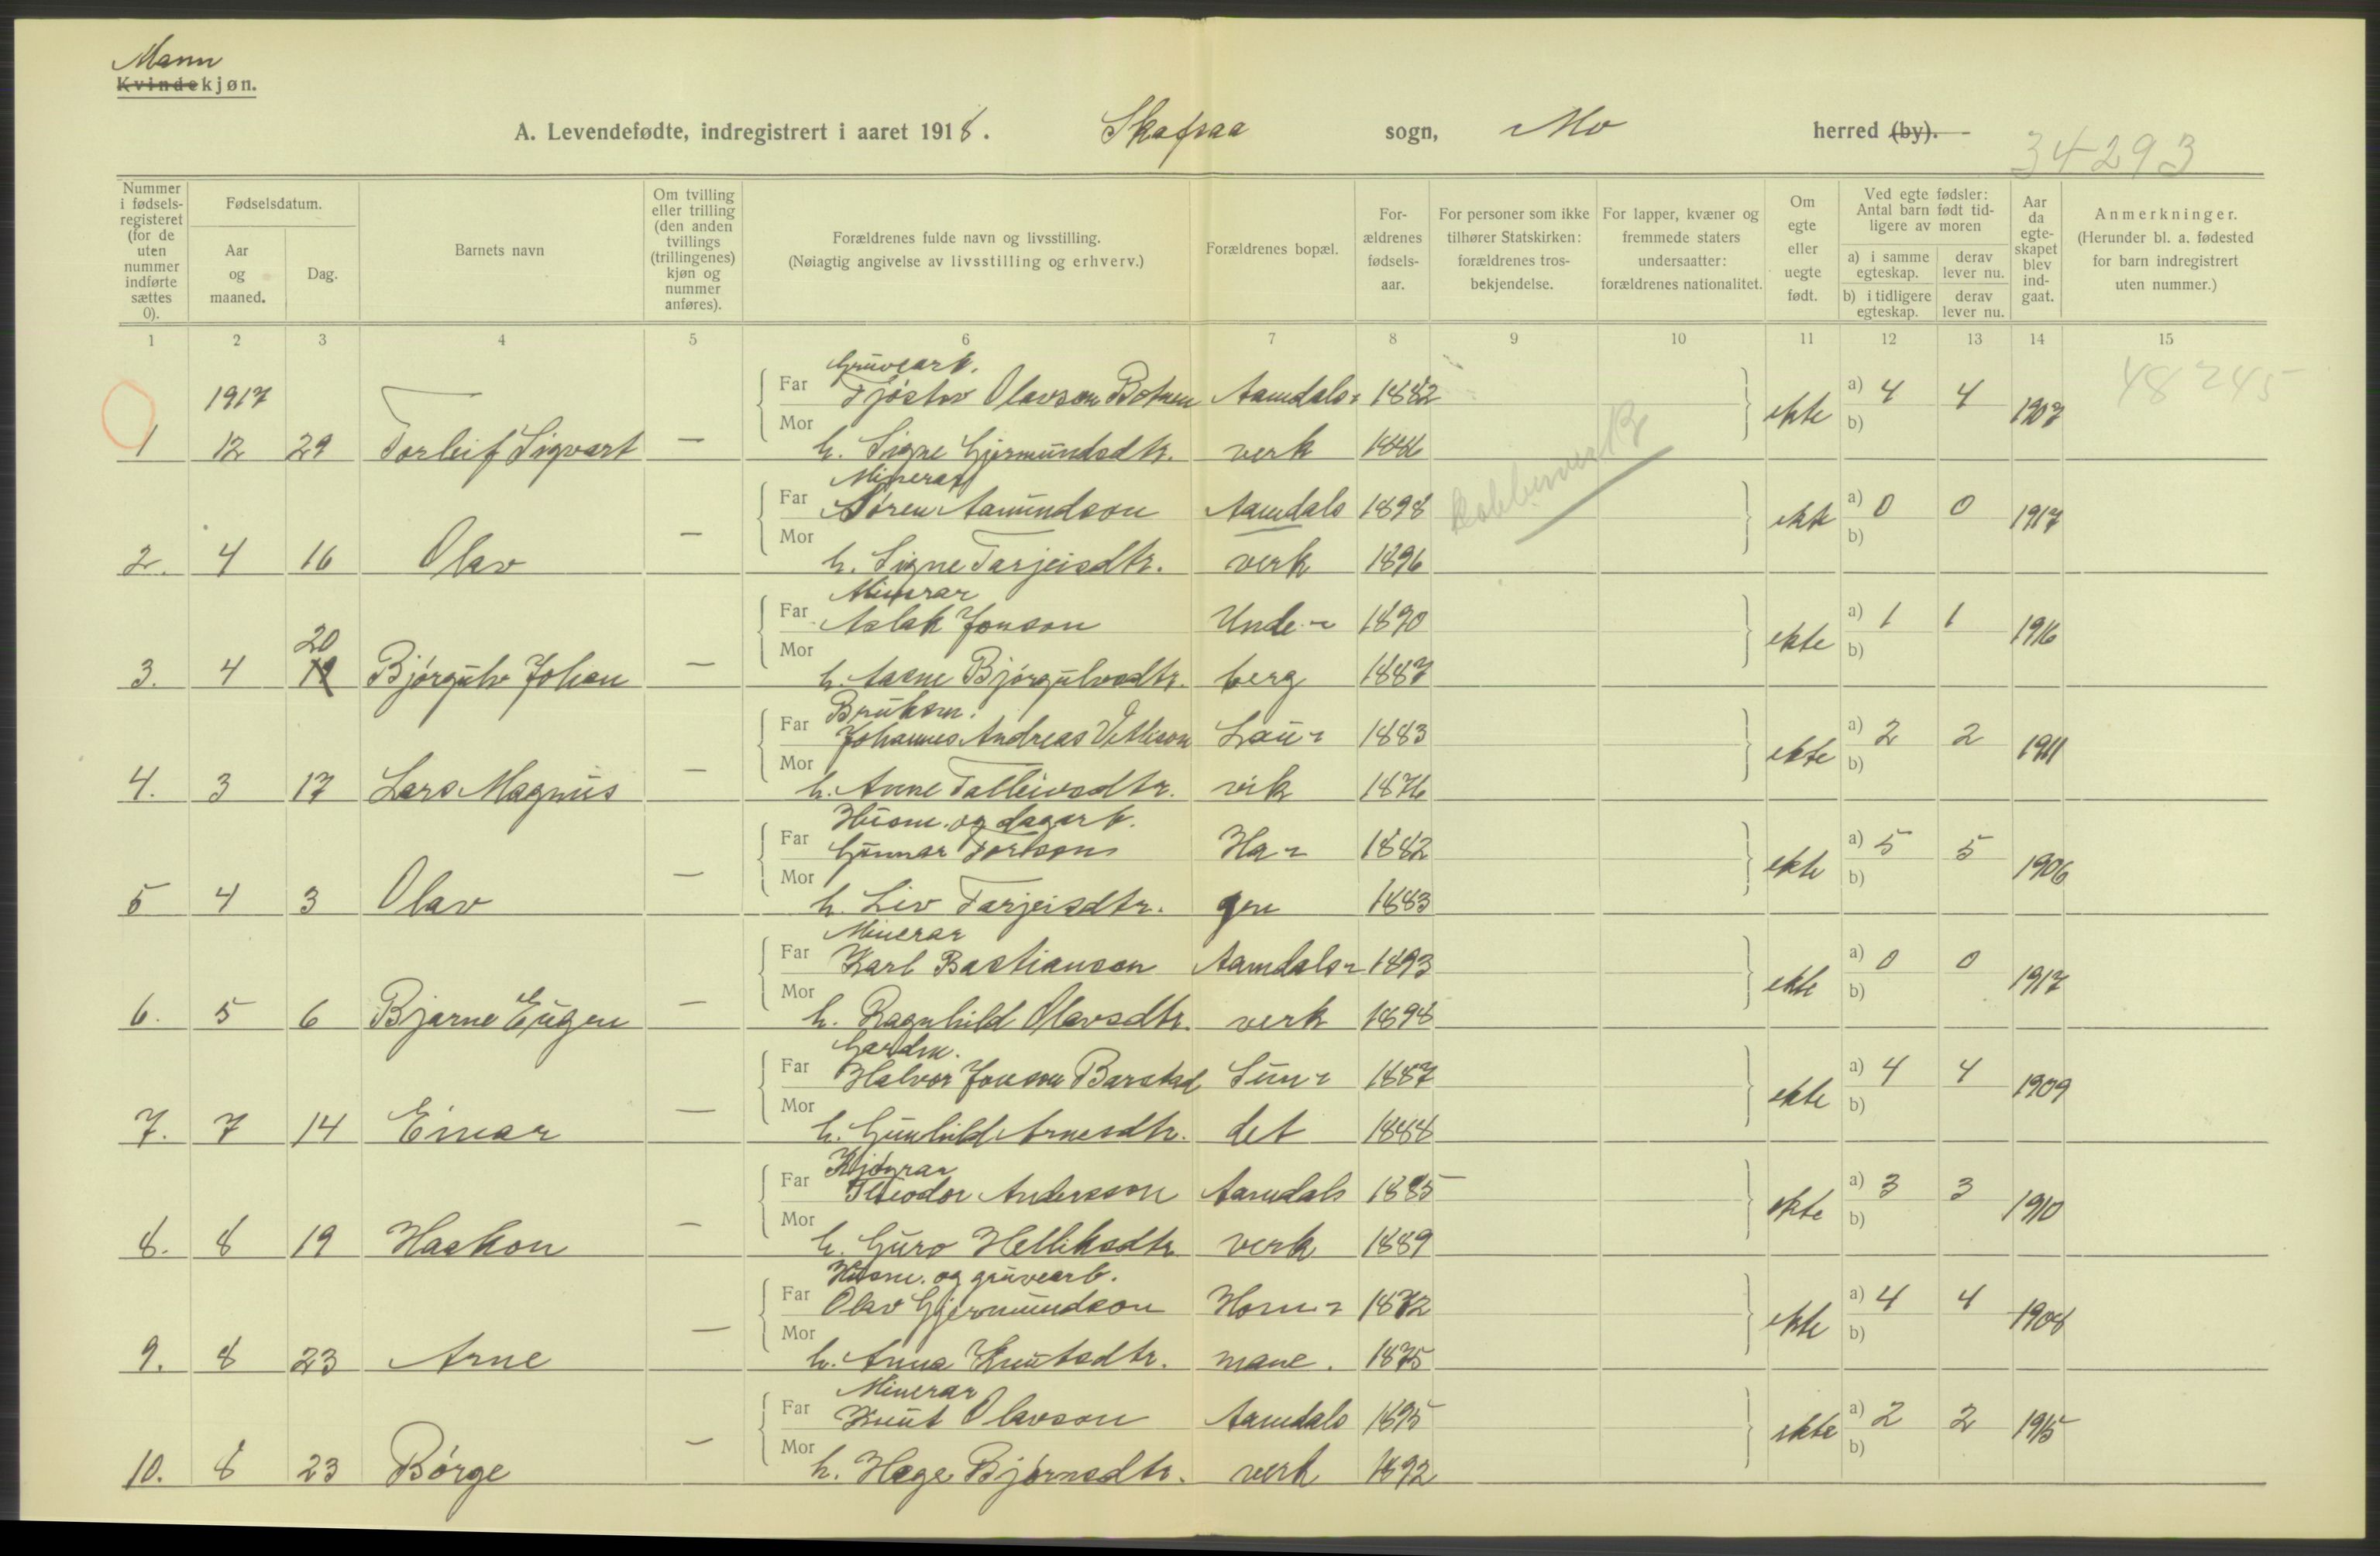 Mann
Kvindekjøn.
A. Levendefødte, indregistrert i aaret 1918. Skafsaa sogn, Mo herred (by).
34293
Nummer i fødsels-registeret (for de uten nummer indførte sættes 0).
Fødselsdatum.
Aar og maaned.
Dag.
Barnets navn
Om tvilling eller trilling (den anden tvillings (trillingenes) kjøn og nummer anføres).
Forældrenes fulde navn og livsstilling.
(Nøiagtig angivelse av livsstilling og erhverv.)
Forældrenes bopæl.
For-ældrenes fødsels-aar.
For personer som ikke tilhører Statskirken: forældrenes tros-bekjendelse.
For lapper, kvæner og fremmede staters undersaatter: forældrenes nationalitet.
Om egte eller uegte født.
Ved egte fødsler: Antal barn født tid-ligere av moren
a) i samme egteskap. derav lever nu.
b) i tidligere egteskap. derav lever nu.
Aar da egte-skapet blev ind-gaat.
Anmerkninger.
(Herunder bl. a. fødested for barn indregistrert uten nummer.)
1 2 3 4 5 6 7 8 9 10 11 12 13 14 15
48245
Gruvearb.
1917 Far Tjøstov Olavson Botnen Aamdals- 1882 ekte a) 4 4 1907
1 12 29 Torleif Sigvart — Mor h. Signe Gjermundsdtr. verk 1886 b)
Kobberverk
Minerar
Far Søren Aamundson Aamdals 1898 ekte a) 0 0 1917
2. 4 16 Olav — Mor h. Signe Tarjeisdtr. verk 1896 b)
Minerar
20 Far Aslak Jonson Unde- 1890 ekte a) 1 1 1916
3. 4 19 Bjørgulv Johan — Mor h. Aasne Bjørgulvsdtr. berg 1887 b)
Bruksm.
Far Johannes Andreas Vetleson Lau- 1883 ekte a) 2 2 1911
4. 3 17 Lars Magnus — Mor h. Anne Talleivsdtr. vik 1876 b)
Husm. og dagarb.
Far Gunnar Torbson Ha- 1882 ekte a) 5 5 1906
5 4 3 Olav — Mor h. Liv Tarjeisdtr. gen 1883 b)
Minerar
Far Karl Bastianson Aamdals- 1893 ekte a) 0 0 1917
6. 5 6 Bjarne Eugen — Mor h. Ragnhild Olavsdtr. verk 1898 b)
Gardm.
Far Halvor Jonson Barstad Sun- 1887 ekte a) 4 4 1909
7. 7 14 Einar — Mor h. Gunhild Arnesdtr. det 1888 b)
Kjøyrar
Far Theodor Andersson Aamdals 1885 ekte a) 3 3 1910
8. 8 19 Haakon — Mor h. Guro Helliksdtr verk 1889 b)
Husm. og gruvearb.
Far Olav Gjermundson Horn- 1872 ekte a) 4 4 1908
9. 8 23 Arne — Mor h. Anna Knutsdtr. mane. 1875 b)
Minerar
Far Knut Olavson Aamdals 1895 ekte a) 2 2 1915
10. 8 23 Børge — Mor h. Hæge Bjørnsdtr. verk 1892 b)